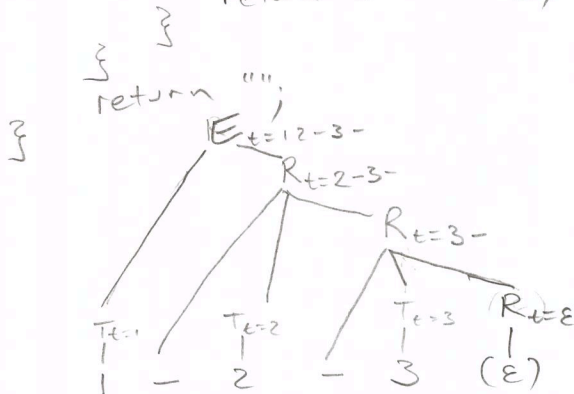 }
}
return "";
}
E t=12-3-
R t=2-3-
R t=3-
T t=1 T t=2 T t=3 R t=ε
1 - 2 - 3 (ε)